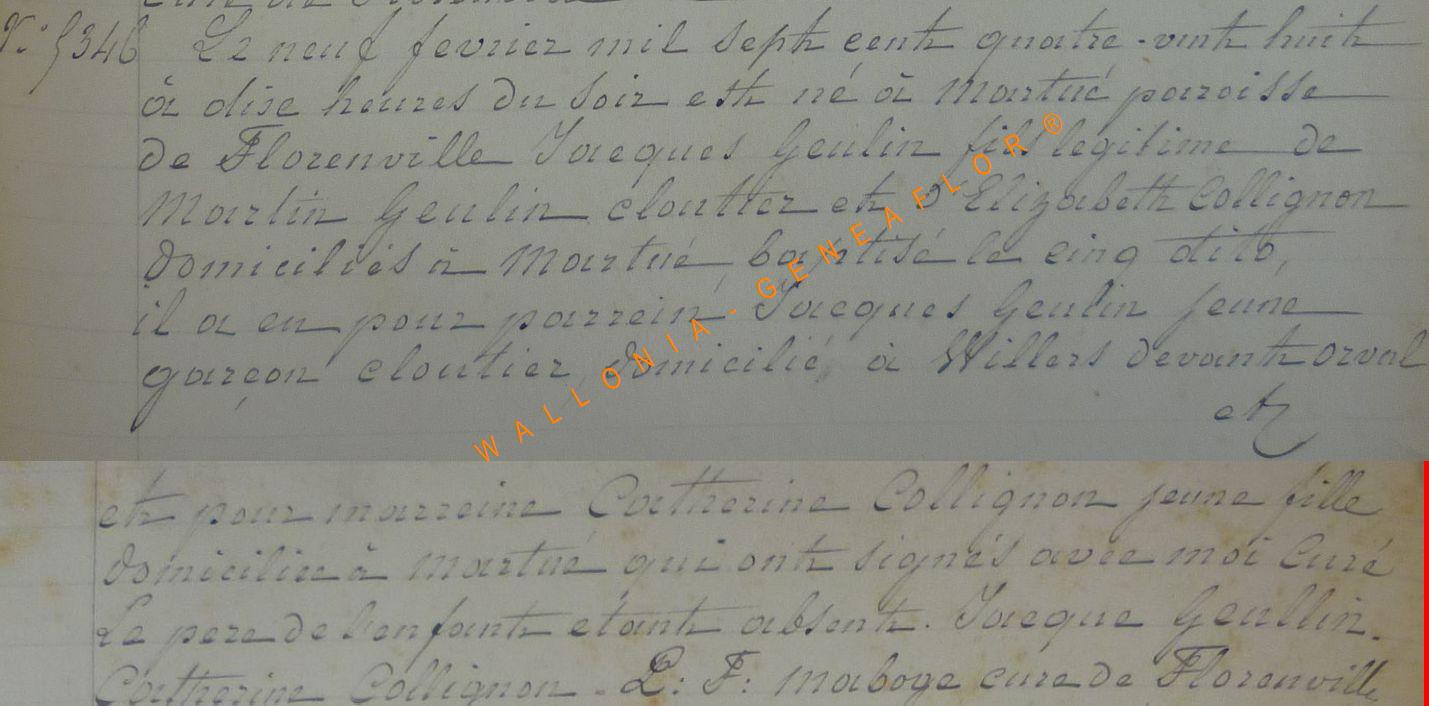 N° 5346 Le neuf fevrier mil sept cent quatre-vint huit
à dixe heures du soir est né à Martué paroisse
de Florenville Jacques Geulin fils legitime de
Martin Geulin cloutier et d'Elizabeth Collignon
domiciliés à Martué, baptisé le cinq dito,
il a eu pour parrein Jacques Geulin jeune
garçon cloutier, domicilié, à Willers devant orval
et
et pour marreine Catherine Collignon jeune fille
domiciliée à Martué qui ont signés avec moi Curé
Le pere de l'enfant etant absent. Jacque Geullin.
Catherine Collignon. L: F: Maboge cure de Florenville
WALLONIA-GENEAFLOR®